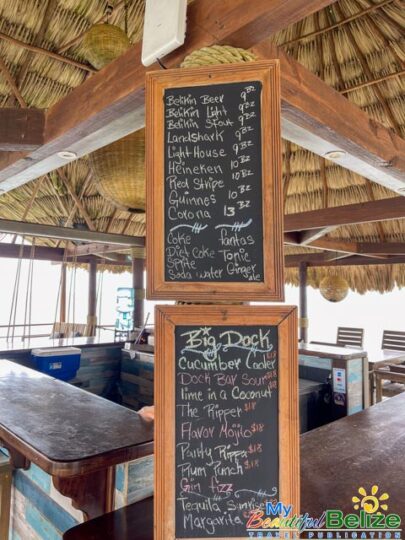 Belikin Beer 9 BZ
Belikin Light 9 BZ
Belikin Stout 9 BZ
Landshark 9 BZ
Light House 9 BZ
Heineken 10 BZ
Red Stripe 10 BZ
Guinnes 10 BZ
Corona 13 BZ
Coke Fantas
Diet Coke Tonic
Sprite
Soda water Ginger ale
Big Dock
Cucumber Cooler
Dock Bar Sour $18
Time in a Coconut
The Ripper $18
Flavor Mojito $18
Panty Rippa $18
Rum Punch $18
Gin fizz
Tequila Sunrise
Margarita
My
Beautiful Belize
TRAVEL PUBLICATION